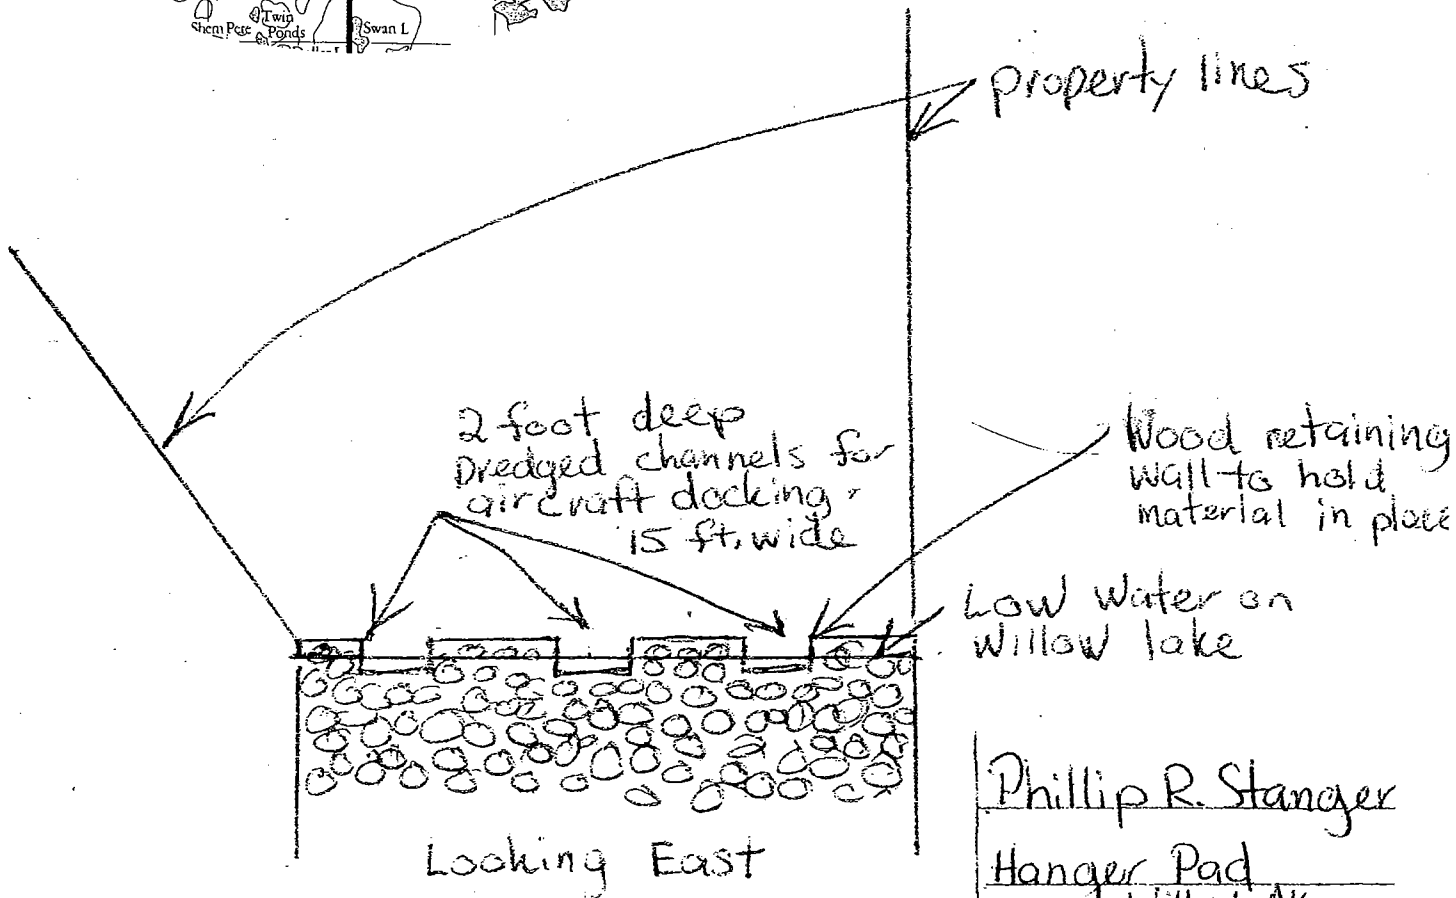 Twin
Shem Pete Ponds
Swan L
property lines
2 foot deep
Dredged channels for
aircraft docking -
15 ft. wide
Wood retaining
wall to hold
material in place
Low Water on
Willow lake
Looking East
Phillip R. Stanger
Hanger Pad